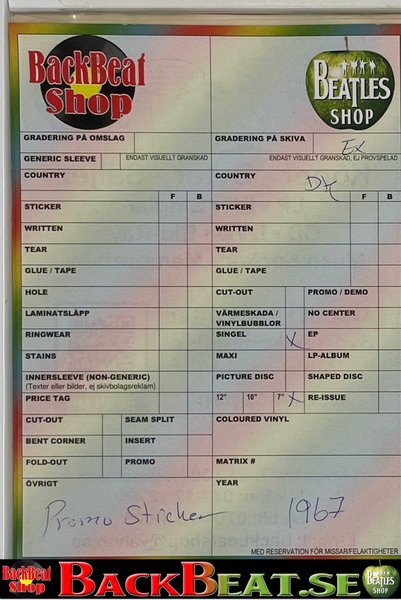 BackBeat
Shop
BEATLES
SHOP
GRADERING PÅ OMSLAG
GRADERING PÅ SKIVA
Ex
GENERIC SLEEVE
ENDAST VISUELLT GRANSKAD
ENDAST VISUELLT GRANSKAD, EJ PROVSPELAD
COUNTRY
COUNTRY
DK
F B
F B
STICKER
STICKER
WRITTEN
WRITTEN
TEAR
TEAR
GLUE / TAPE
GLUE / TAPE
HOLE
CUT-OUT
PROMO / DEMO
LAMINATSLÄPP
VÄRMESKADA /
VINYLBUBBLOR
NO CENTER
RINGWEAR
SINGEL
X
EP
STAINS
MAXI
LP-ALBUM
INNERSLEEVE (NON-GENERIC)
(Texter eller bilder, ej skivbolagsreklam)
PICTURE DISC
SHAPED DISC
PRICE TAG
12" 10" 7" X
RE-ISSUE
CUT-OUT
SEAM SPLIT
COLOURED VINYL
BENT CORNER
INSERT
FOLD-OUT
PROMO
MATRIX #
ÖVRIGT
YEAR
Promo Sticker
1967
MED RESERVATION FÖR MISSAR/FELAKTIGHETER
BackBeat
Shop
BACKBEAT.SE
BEATLES
SHOP